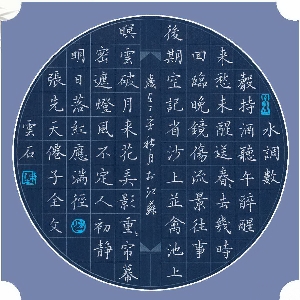 水調數
聲持酒聽午醉醒
來愁未醒送春去幾時
回臨晚鏡傷流景往事
後期空記省沙上並禽池上
秋月於江蘇
暝雲破月來花弄影重帘幕
密遮燈風不定人初靜
明日落紅應滿徑
張先天僊子全文
雲石